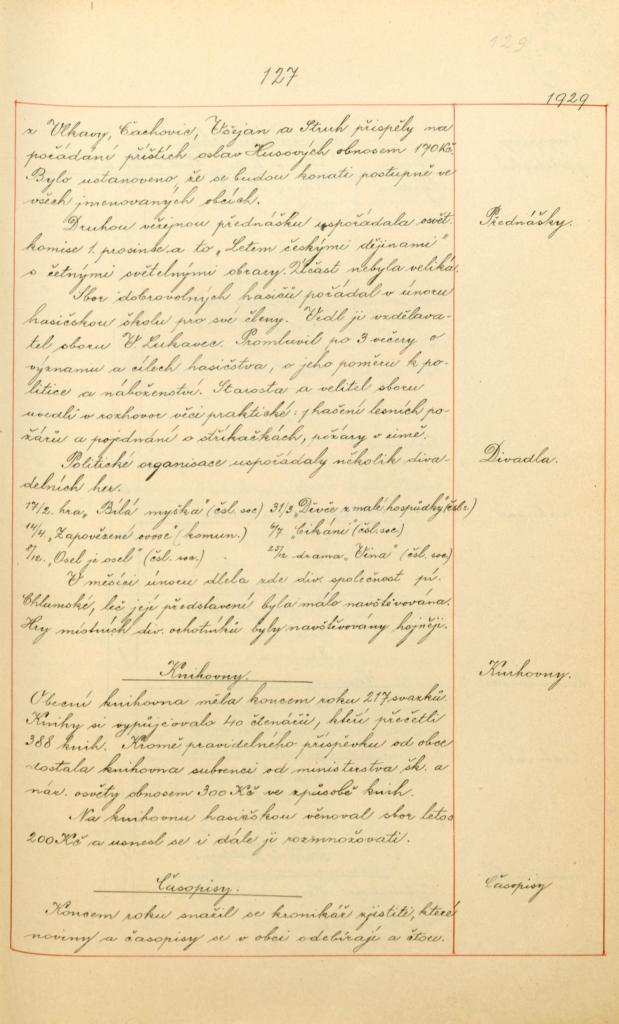 129
127
1929
z Vlkavy, Čachovic, Všejan a Struh přispěly na
pořádání příštích oslav Husových obnosem 170 Kč.
Bylo ustanoveno, že se budou konati postupně ve
všech jmenovaných obcích.
Druhou veřejnou přednášku uspořádala osvět.
Přednášky.
komise 1. prosince a to „Letem českými dějinami"
s četnými světelnými obrazy. Účast nebyla veliká.
Sbor dobrovolných hasičů pořádal v únoru
hasičskou školu pro své členy. Vedl ji vzdělava-
tel sboru V. Lukavec. Promluvil po 3 večery o
významu a cílech hasičstva, o jeho poměru k po-
litice a náboženství. Starosta a velitel sboru
uvedli v rozhovor věci praktické: hašení lesních po-
žárů a pojednání o stříkačkách, požáry v zimě.
Politické organisace uspořádaly několik diva-
Divadla.
delních her.
17/2. hra „Bílá myška" (čsl. soc) 31/3 „Děvče z malé hospůdky" (čsl. )
14/4. „Zapovězené ovoce" (komun.) 6/7 „Cikáni" (čsl. soc)
8/12. „Osel je osel" (čsl. soc.) 25/12 drama „Vina" (čsl. soc)
V měsíci únoru dlela zde div. společnost pí.
Chlumské, leč její představení byla málo navštěvována.
Hry místních div. ochotníků byly navštěvovány hojněji.
Knihovny.
Knihovny.
Obecní knihovna měla koncem roku 217 svazků.
Knihy si vypůjčovalo 40 čtenářů, kteří přečetli
388 knih. Kromě pravidelného příspěvku od obce
dostala knihovna subvenci od ministerstva šk. a
nár. osvěty obnosem 300 Kč ve způsobě knih.
Na knihovnu hasičskou věnoval sbor letos
200 Kč a usnesl se i dále ji rozmnožovati.
Časopisy.
Časopisy
Koncem roku snažil se kronikář zjistiti, které
noviny a časopisy se v obci odebírají a čtou.